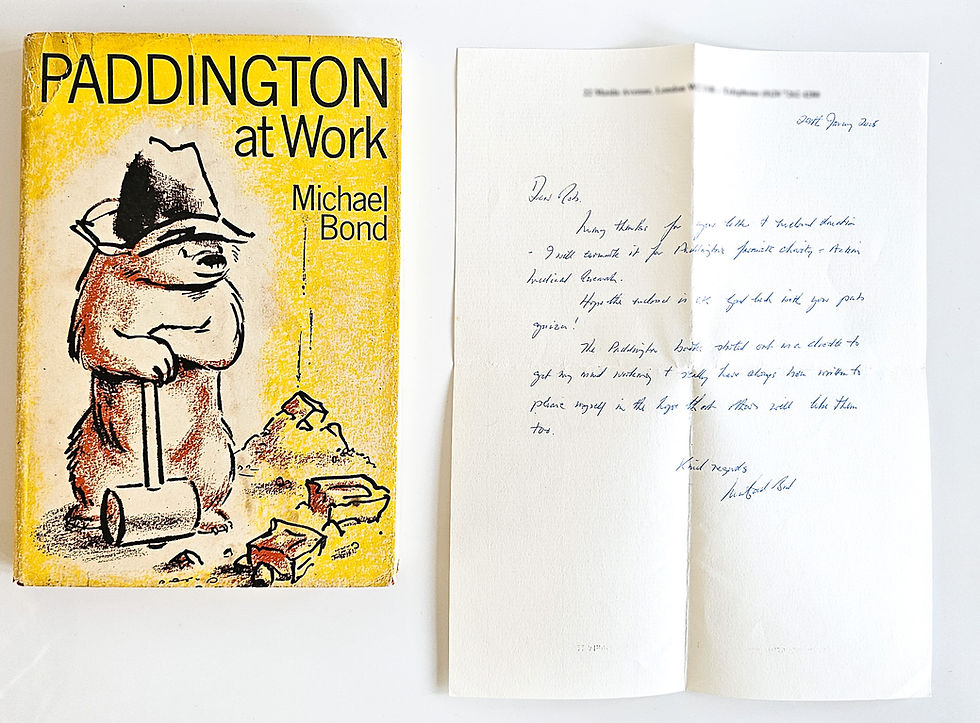 PADDINGTON
at Work
Michael
Bond
29th January
Dear Rob.
Many thanks for your letter & enclosed donation
- I will earmark it for Paddington's favourite charity - Action
Medical Research.
Hope the enclosed is OK. Good luck with your pub
quizzes!
The Paddington books started out as a doodle to
get my mind working & really have always been written to
please myself in the hope that others will like them
too.
Kind regards
Michael Bond